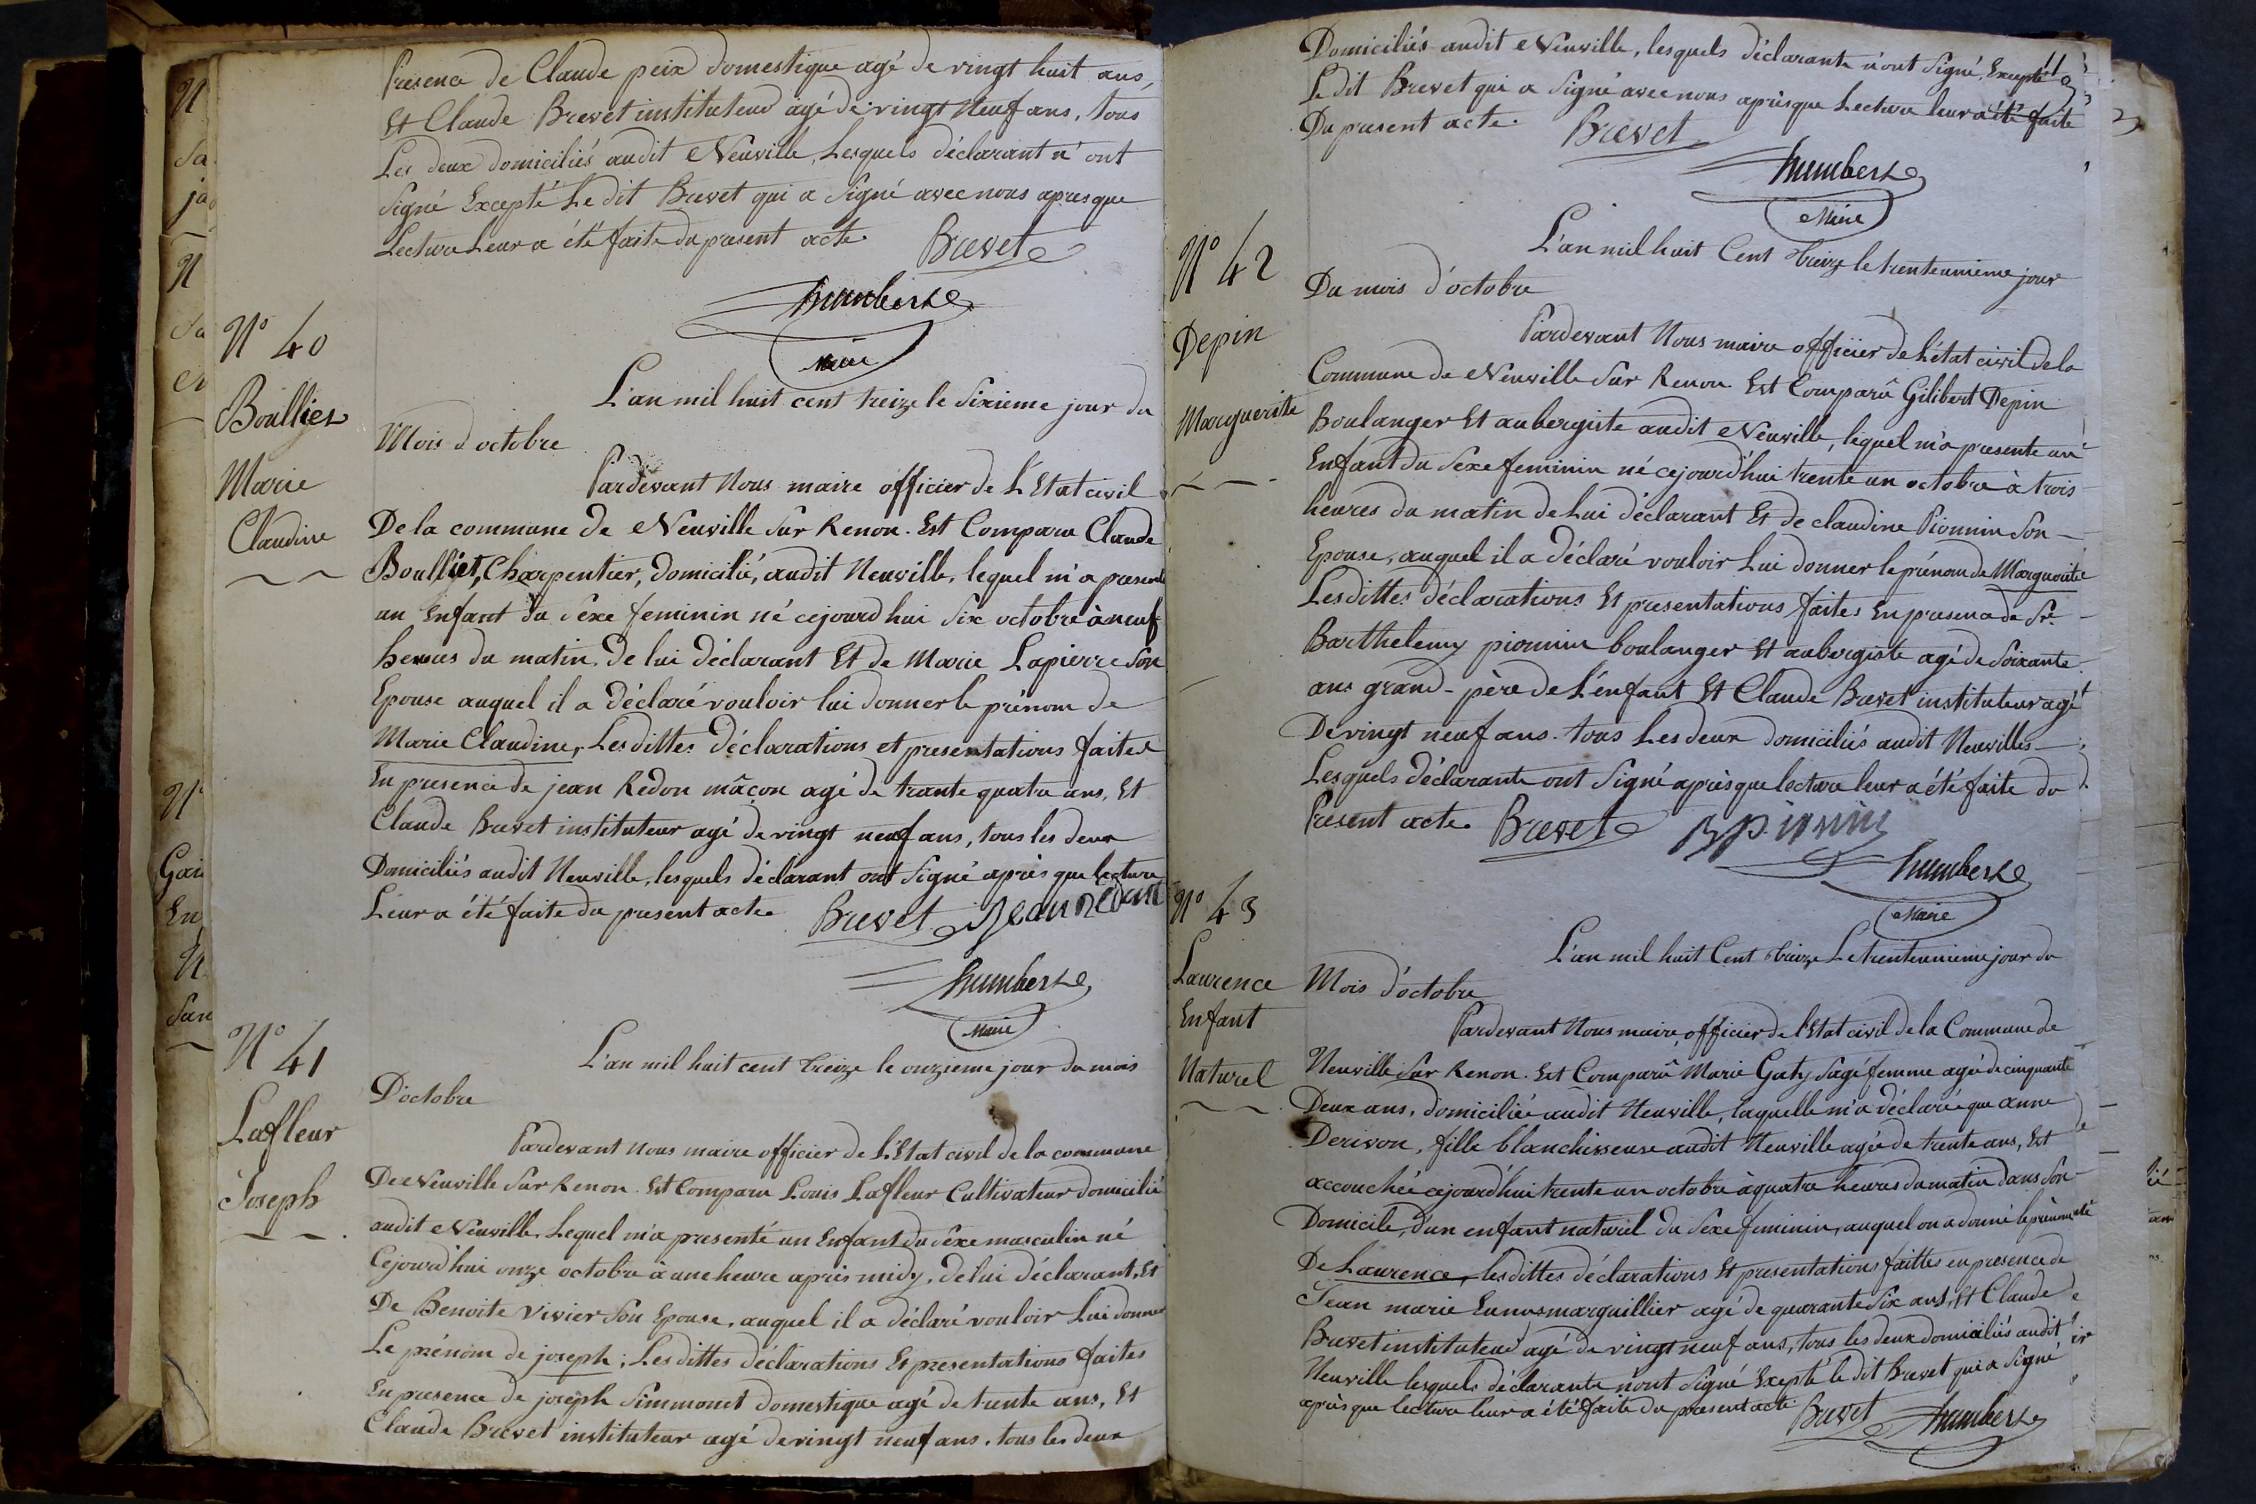 Presence de Claude peix domestique agé de vingt huit ans,
Et Claude Brevet instituteur agé de vingt Neuf ans, tous
Les deux domiciliés audit Neuville, Lesquels déclarant n'ont
Signé Excepté Le dit Brevet qui a Signé avec nous apres que
Lecture Leur a été faite du present acte. Brevet
humbert
Maire
N° 40
Boullier
Marie
Claudine
L'an mil huit cent treize le Sixieme jour du
Mois d'octobre
Pardevant Nous maire officier de L'Etat civil
De la commune de Neuville Sur Renon. Est Comparu Claude
Boulliet, Charpentier, domicilié, audit Neuville, lequel m'a presenté
un Enfant du Sexe feminin né cejourd'hui Six octobre à neuf
heures du matin. De lui déclarant Et de Marie Lapierre Son
Epouse auquel il a déclaré vouloir lui donner le prénom de
Marie Claudine, Lesdittes déclarations et presentations faites
En presence de jean Redon mâçon agé de trante quatre ans, Et
Claude Brevet instituteur agé de vingt neuf ans, tous les deux
Domiciliés audit Neuville, lesquels déclarant ont Signé après que lecture
Leur a été faite du present acte. Brevet Jean redon
humbert
Maire
N° 41
Lafleur
Joseph
L'an mil huit cent treize le onzieme jour du mois
D'octobre
Pardevant nous maire officier de L'Etat civil de la commune
De Neuville Sur Renon. Est Comparu Louis Lafleur Cultivateur domicilié
audit Neuville, Lequel m'a presenté un Enfant du Sexe masculin né
Cejourd'hui onze octobre à une heure après midy, de lui déclarant, Et
De Benoite Vivier Son Epouse, auquel il a déclaré vouloir Lui donner
Le prénom de joseph; Lesdittes déclarations Et presentations faites
En presence de joseph Simmonet domestique agé de trente ans, Et
Claude Brevet instituteur agé de vingt neuf ans, tous les deux
Domiciliés audit Neuville, lesquels déclarants n'ont Signé Excepté
Le dit Brevet qui a Signé avec nous après que Lecture leur a été faite
Du present acte. Brevet
humbert
Maire
N° 42
Depin
Marguerite
L'an mil huit Cent treize le trente unieme jour
Du mois d'octobre
Pardevant Nous maire officier de L'état civil de la
Commune de Neuville Sur Renon. Est Comparû Gilibert Depin
Boulanger Et aubergiste audit Neuville, lequel m'a presenté un
Enfant du Sexe feminin né cejourd'hui trente un octobre à trois
heures du matin de Lui déclarant Et de claudine Pionnin Son
Epouse, auquel il a déclaré vouloir Lui donner le prénom de Marguerite
Lesdittes déclarations Et presentations faites En presence de Sr.
Barthelemy pionnin boulanger Et aubergiste agé de Soixante
ans grand-père de L'enfant Et Claude Brevet instituteur agé
De vingt neuf ans. tous Les deux domiciliés audit Neuville
Lesquels déclarants ont Signé après que lecture leur a été faite du
Present acte. Brevet B pionnin
humbert
Maire
N° 43
Laurence
Enfant
Naturel
L'an mil huit Cent treize Le trente unieme jour du
Mois d'octobre
Pardevant Nous maire, officier de l'Etat civil de la Commune de
Neuville Sur Renon. Est Comparû Marie Gaty Sagé femme agé de cinquante
Deux ans, domiciliée audit Neuville, laquelle m'a déclaré que anne
Derivon, fille blanchisseuse audit Neuville agée de trente ans, Est
accouchée cejourd'hui trente un octobre à quatre heures du matin dans Son
Domicile, d'un enfant naturel du Sexe feminin, auquel on a donné le prénom
De Laurence, lesdittes déclarations Et presentations faittes en presence de
Jean marie marguillier agé de quarante Six ans, Et Claude
Brevet instituteur agé de vingt neuf ans, tous les deux domiciliés audit
Neuville lesquels déclarants n'ont Signé Excepté le dit Brevet qui a Signé
après que lecture leur a été faite du present acte Brevet humbert